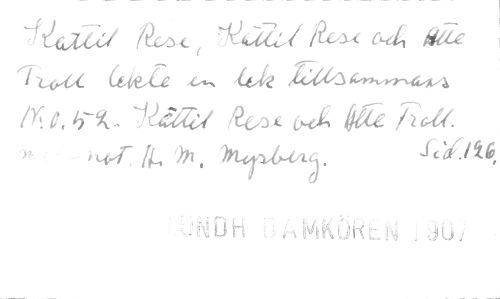 Kattil Rese, Kattil Rese och Atte
Troll lekte en lek tillsammans
N.o.52. Kattil Rese och Atte Troll.
not. H. M. Mysberg. Sid.126.
LUNDH DAMKÖREN 1907